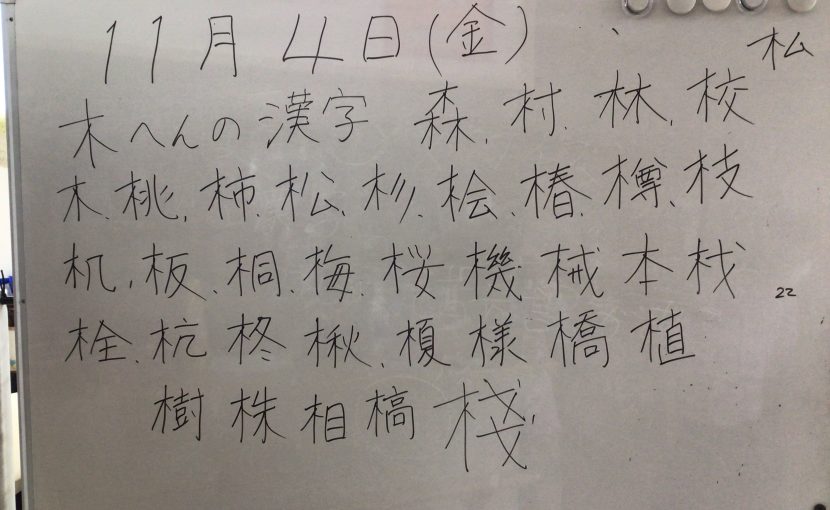 11月4日(金)
木へんの漢字 森、村、林、校
木、桃、柿、松、杉、桧、椿、樽、枝
机、板、桐、梅、桜 機 械 本
22
栓、杭 柊 楸、榎 様 橋 植
樹 株 相 槁 棧